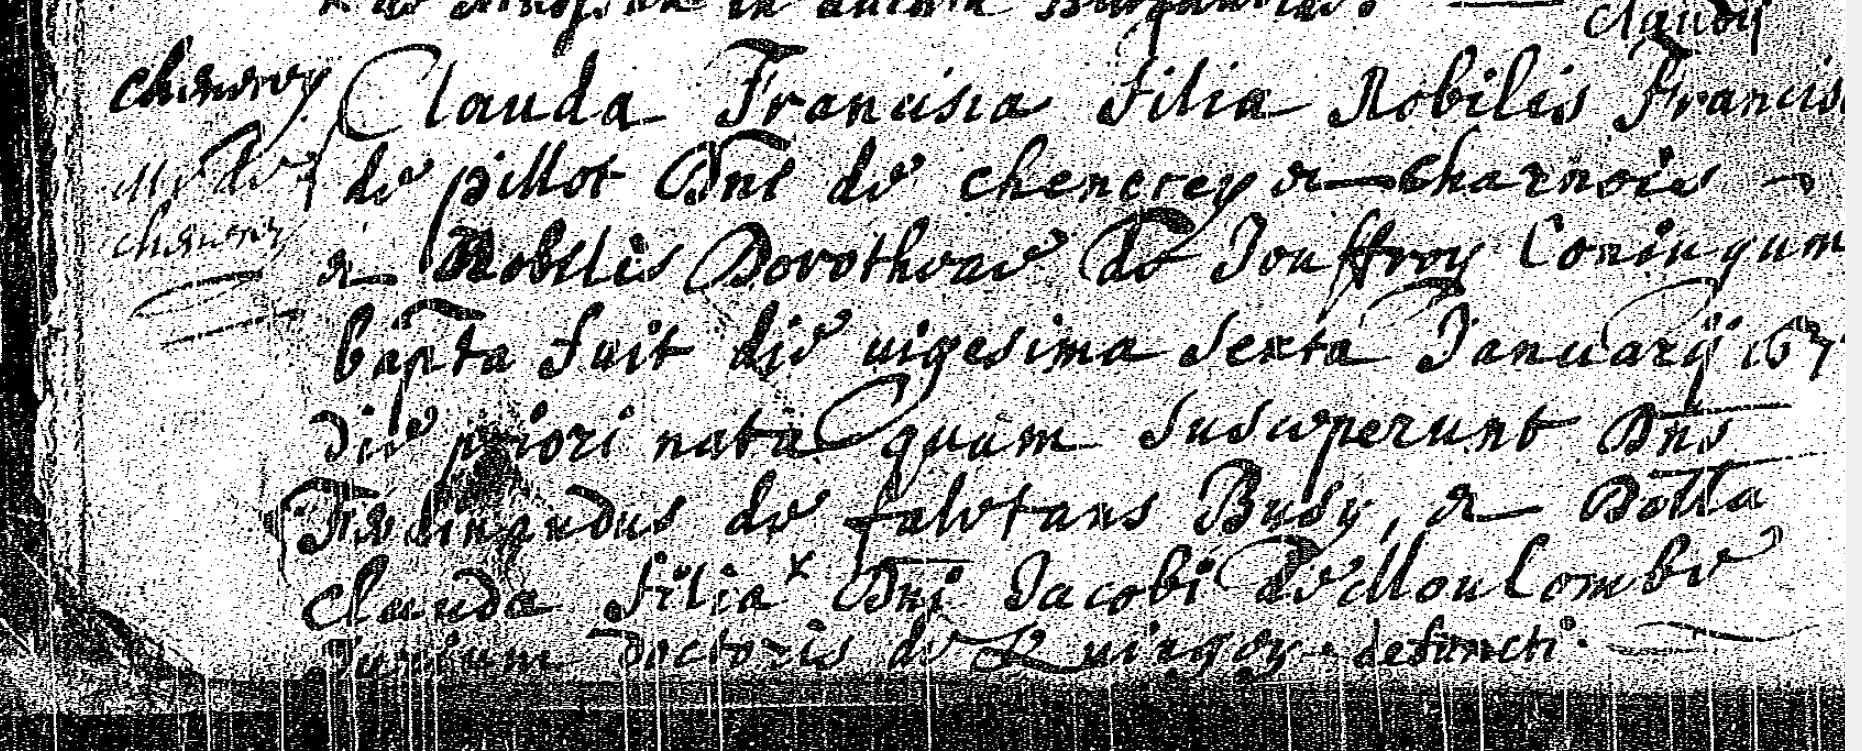 in
claudij
chenecey
Clauda Francisca filia Nobilis Francis
Mr de
de pillot Dni de chenecey & charnois
chenecey
& Nobilis Dorotheae de Jouffroy Coniugum
bapta fuit die uigesima sexta Januarij 167
die priori nata quam susceperunt Dns
Ferdinandus de saletans Busy, & Dolla
Clauda filia Dni Jacobi de Moulombe
Jurium doctoris de Quingey defuncti.